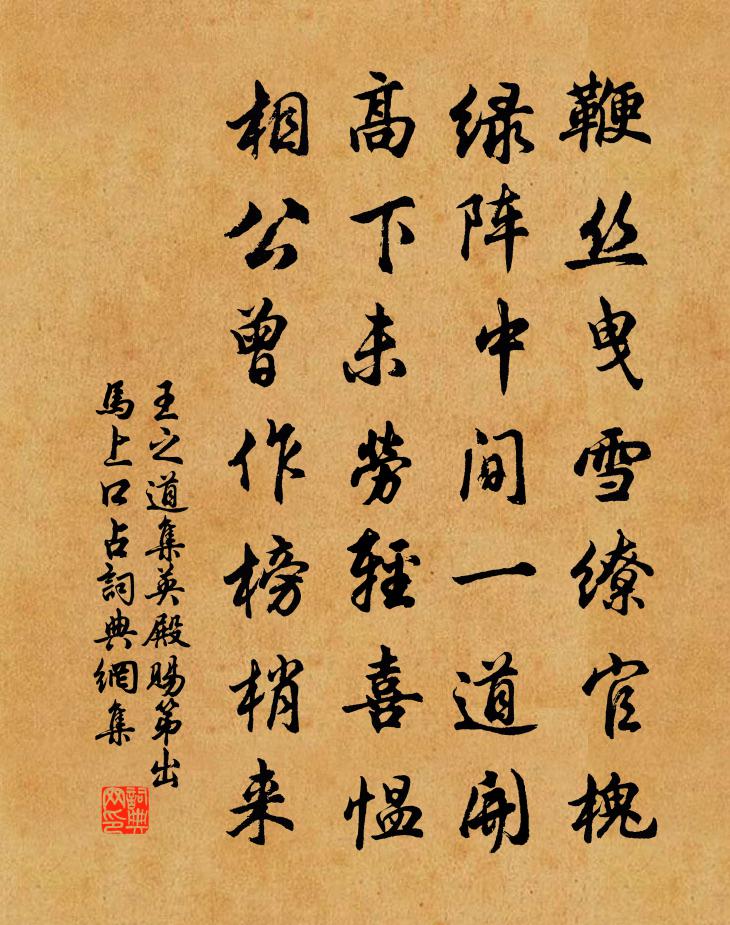 鞭丝曳雪缭官槐
绿阵中间一道開
高下未劳輕喜愠
相公曾作榜梢来
王之道集英殿賜第出
馬上口占詞典網集
詞典網印